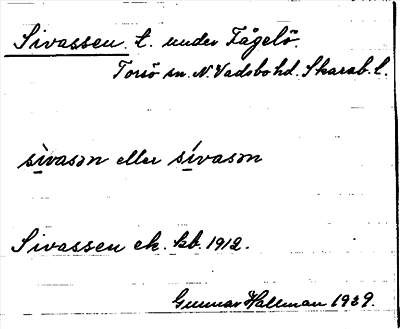 Sivassen t. under Fågelö.
Torsö sn. N. Vadsbo hd. Skarab. l.
sìvasən eller sívasən
Sivassen ek. kb. 1912.
Gunnar Hallman 1939.